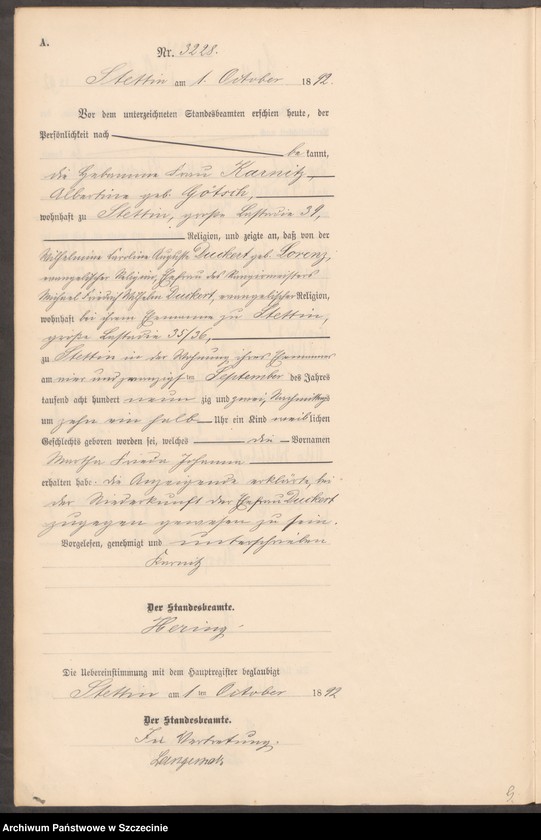 A.
Nr. 3228.
Stettin am 1. October 1892.
Vor dem unterzeichneten Standesbeamten erschien heute, der
Persönlichkeit nach
bekannt,
die Hebamme Frau Karnitz
Albertine geb. Götsch,
wohnhaft zu Stettin, große Lastadie 39,
Religion, und zeigte an, daß von der
Wilhelmine Caroline Auguste Duckert geb. Lorenz,
evangelischer Religion, Ehefrau des Rangirmeisters
Michael Friedrich Wilhelm Duckert, evangelischer Religion,
wohnhaft bei ihrem Ehemanne zu Stettin,
große Lastadie 35/36,
zu Stettin in der Wohnung ihres Ehemannes
am vier und zwanzigsten September des Jahres
tausend acht hundert neunzig und zwei, Nachmittags
um zehn ein halb Uhr ein Kind weiblichen
Geschlechts geboren worden sei, welches die Vornamen
Martha Frieda Johanna
erhalten habe. die Anzeigende erklärte, bei
der Niederkunft der Ehefrau Duckert
zugegen gewesen zu sein.
Vorgelesen, genehmigt und unterschrieben
Karnitz
Der Standesbeamte.
Hering
Die Uebereinstimmung mit dem Hauptregister beglaubigt
Stettin am 1ten October 1892
Der Standesbeamte.
In Vertretung.
Archiwum Państwowe w Szczecinie